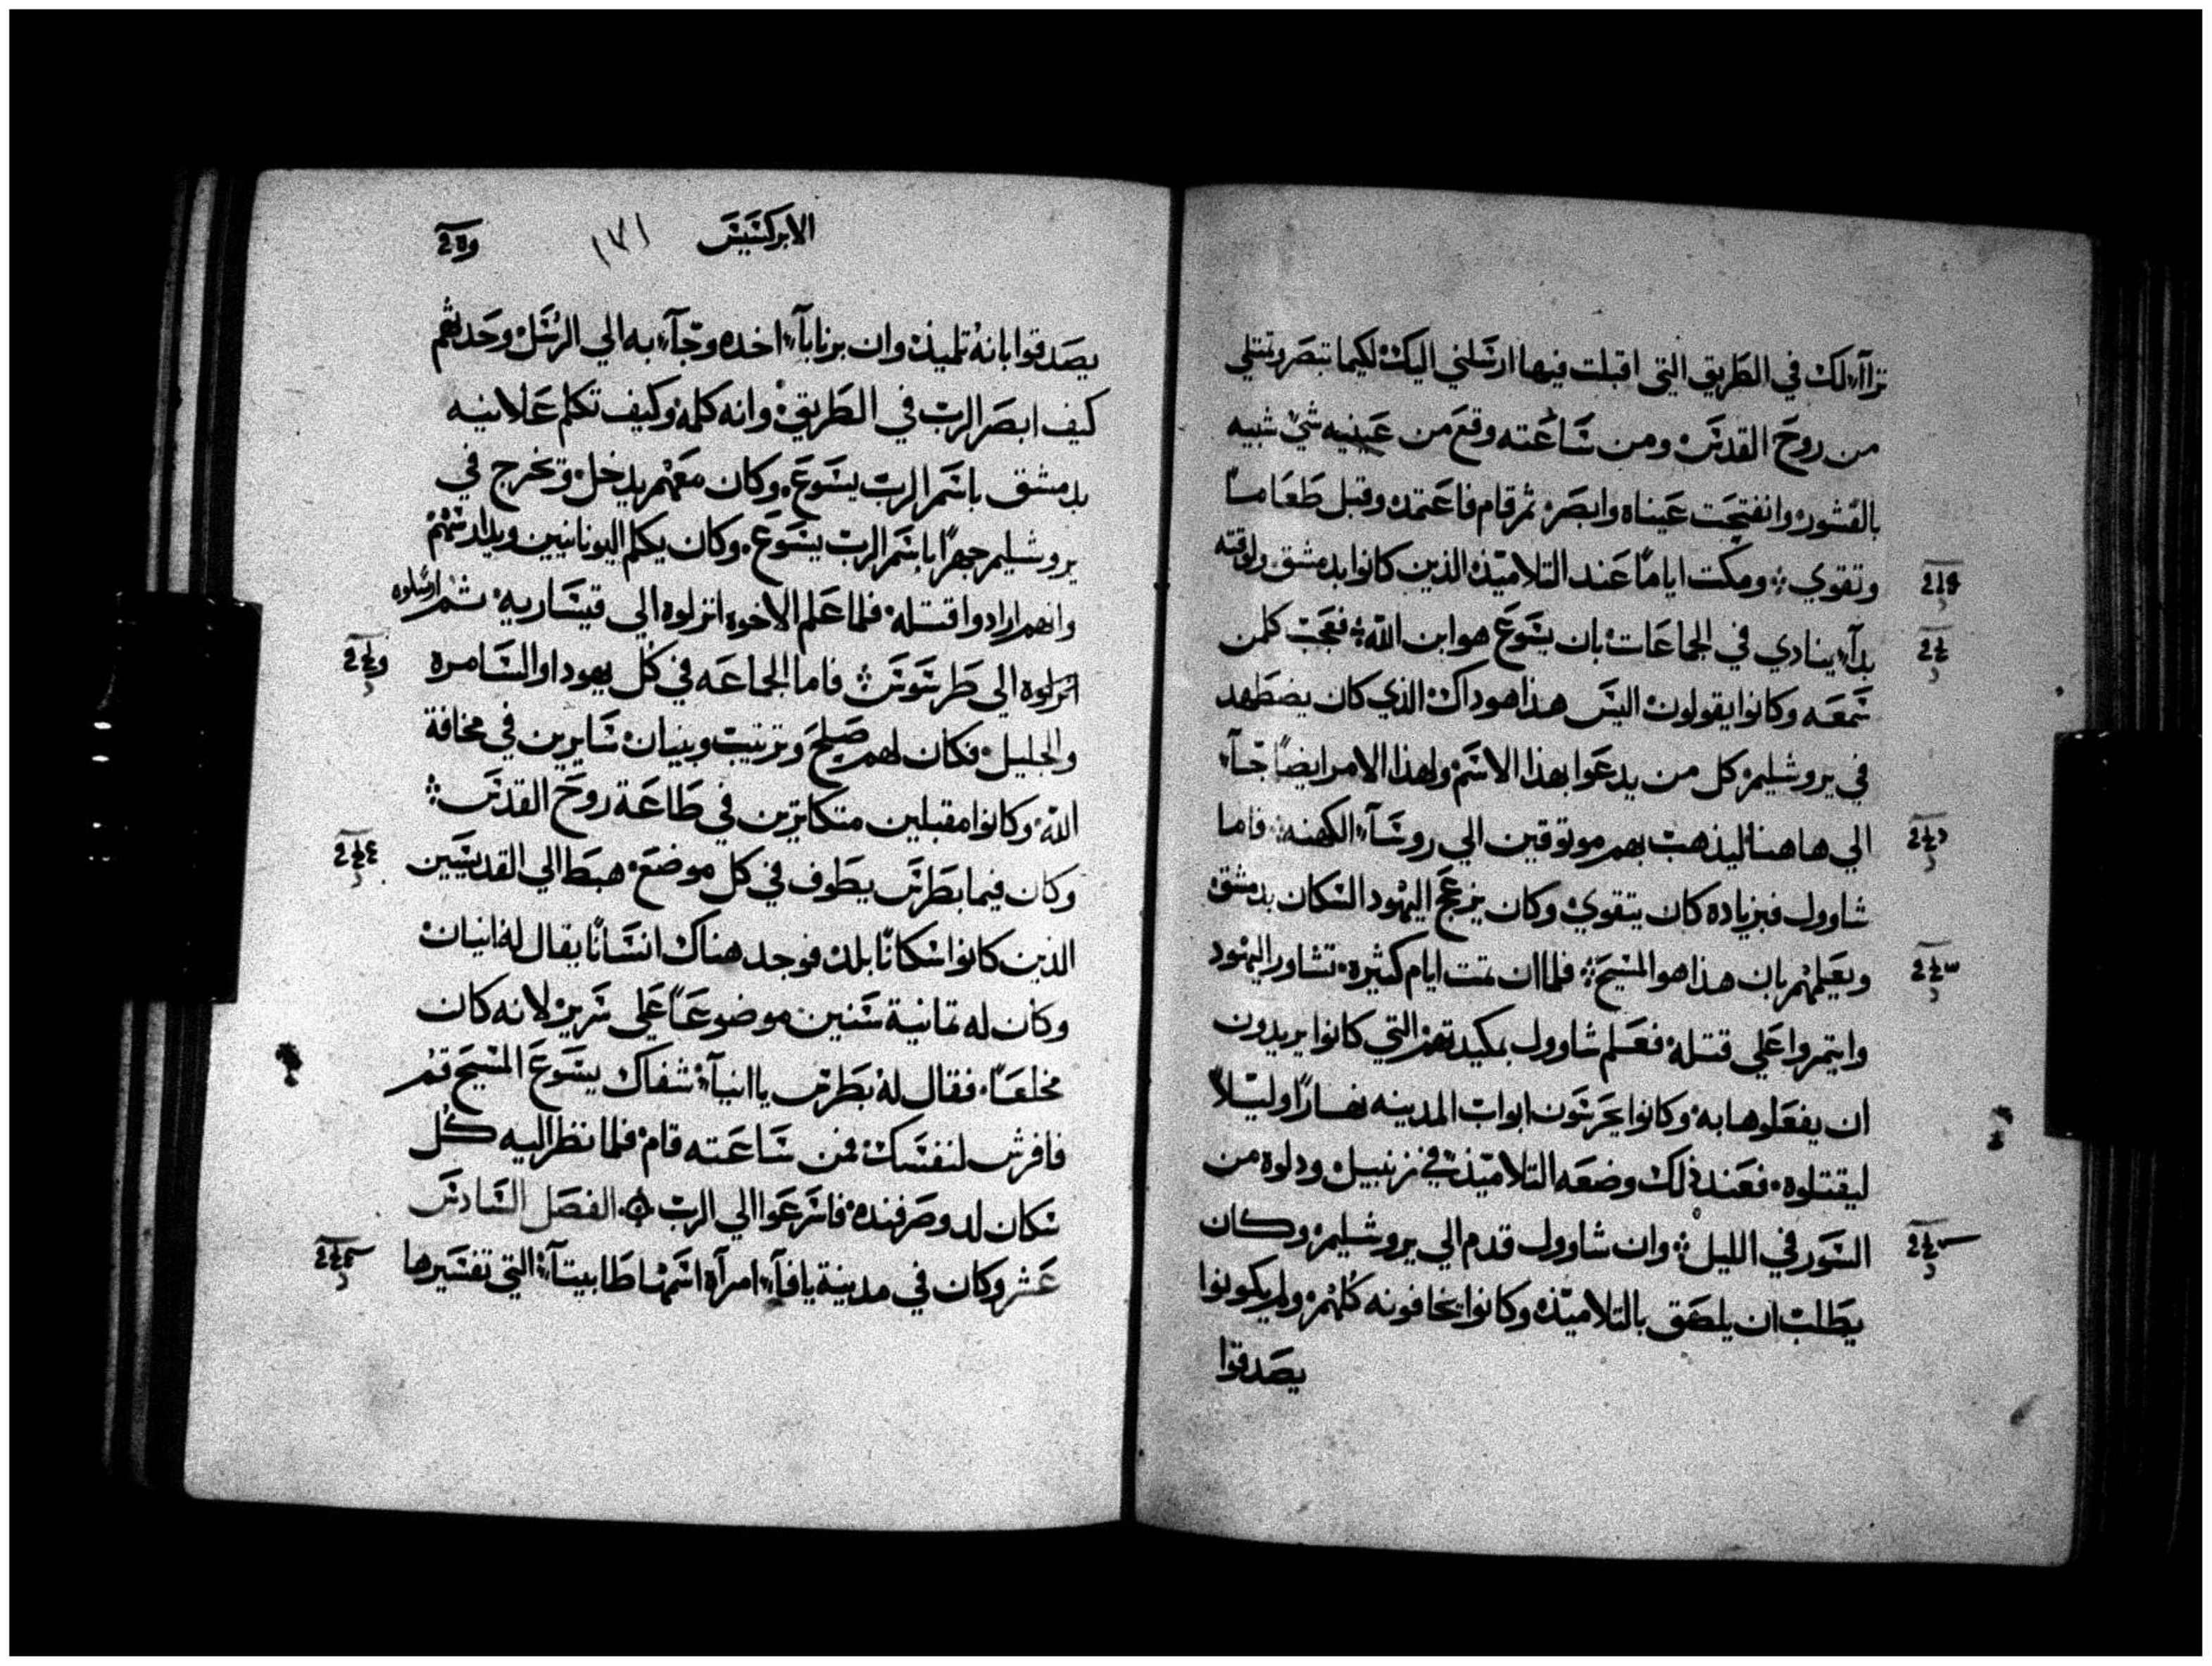 تراآا لك في الطريق التي اقبلت فيها ارسلني اليك لكيما تبصر وتمتلي
من روح القدس ومن ساعته وقع من عينيه شي شبيه
بالقشور وانفتحت عيناه وابصر ثم قام فاعتمد وقبل طعاما
وتقوي ومكت اياما عند التلاميذ الذين كانوا بدمشق ولوقته
بدآ ينادي في الجماعات بان يسوع هو ابن الله فعجب كلمن
سمعه وكانوا يقولون اليس هذا هو داك الذي كان يضطهد
في يروشليم كل من يدعوا بهذا الاسم ولهذا الامر ايضا جآ
الي هاهنا ليذهب بهم موتوقين الي روسآ الكهنه فاما
شاوول فبزياده كان يتقوي وكان يزعج اليهود السكان بدمشق
ويعلمهم بان هذا هو المسيح فلما ان تمت ايام كثيره تشاور اليهود
وايتمروا علي قتله فعلم شاوول بمكيدتهم التي كانوا يريدون
ان يفعلوها به وكانوا يحرسون ابواب المدينه نهارا وليلا
ليقتلوه فعند ذلك وضعه التلاميذ في زنبيل ودلوه من
السور في الليل وان شاوول قدم الي يروشليم وكان
يطلب ان يلصق بالتلاميذ وكانوا يخافونه كلهم ولم يكونوا
يصدقوا
الابركسيس ١٧١
يصدقوا بانه تلميذ وان برنابآ اخده وجآ به الي الرسل وحدثهم
كيف ابصر الرب في الطريق وانه كلمه وكيف تكلم علانيه
بدمشق باسم الرب يسوع وكان معهم يدخل وتخرج في
يروشليم جهرا باسم الرب يسوع وكان يكلم اليونانيين ويدارسهم
وانهم ارادوا قتله فلما علم الاخوه انزلوه الي قيساريه ثم ارسلوه
انزلوه الي طرسوس فاما الجماعه في كل يهودا والسامره
والجليل فكان لهم صلح وترتيب وبنيان سايرين في مخافة
الله وكانوا مقبلين متكاترين في طاعة روح القدس
وكان فيما بطرس يطوف في كل موضع هبط الي القديسين
الذين كانوا سكانا بلد فوجد هناك انسانا يقال له انيان
وكان له تمانية سنين موضوعا علي سرير لانه كان
مخلعا فقال له بطرس يا انيآ شفاك يسوع المسيح قم
فافرش لنفسك فمن ساعته قام فلما نظر اليه كل
سكان لد وصرفنده فاسرعوا الي الرب الفصل السادس
عشر وكان في مدينة يافآ امرآة اسمها طابيتآ التي تفسيرها